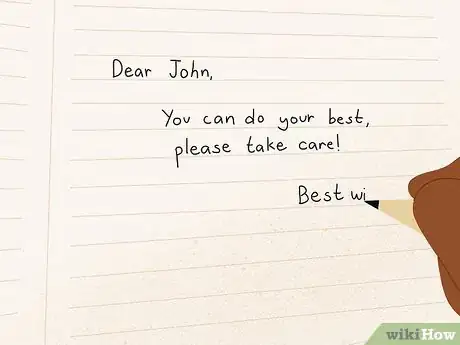 Dear John,
You can do your best,
please take care!
Best wi
wikiHow